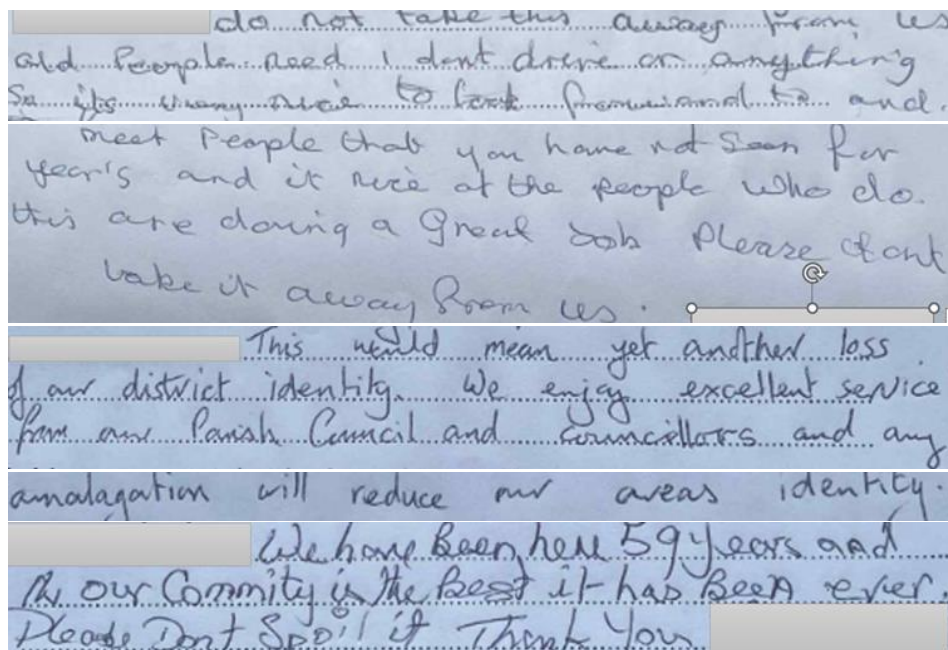 do not take this away from us
old People need I dont drive or anything
So its very nice to look forward to and
meet People that you have not Seen for
year's and it nice at the people who do.
this are doing a Great Job Please dont
take it away from us.
This would mean yet another loss
of our district identity. We enjoy excellent service
from our Parish Council and councillors and any
amalagation will reduce our areas identity.
We have Been here 59 years and
our Commity is the Best it has Been ever.
Please Dont Spoil it Thank You